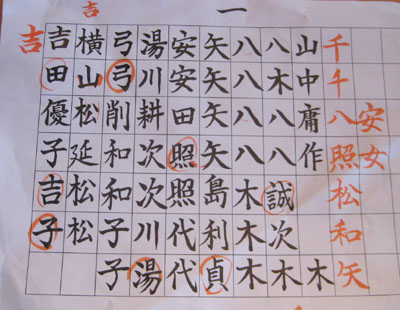 一
安女
千千八照松和矢
山中庸作木
八木八八誠次木
八八八八木木木
矢矢矢矢島利貞
安安田照照代代
湯川耕次次川湯
弓弓削和和子子
横山松延松松
吉
吉田優子吉子
吉